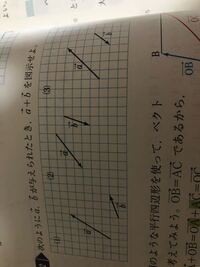 次のように a⃗, b⃗ が与えられたとき, a⃗+b⃗ を図示せよ。
(1)
a⃗
b⃗
(2)
a⃗
b⃗
(3)
a⃗
b⃗
B
OB⃗
のような平行四辺形を使って, ベクト
考えてみよう。OB⃗=AC⃗ であるから,